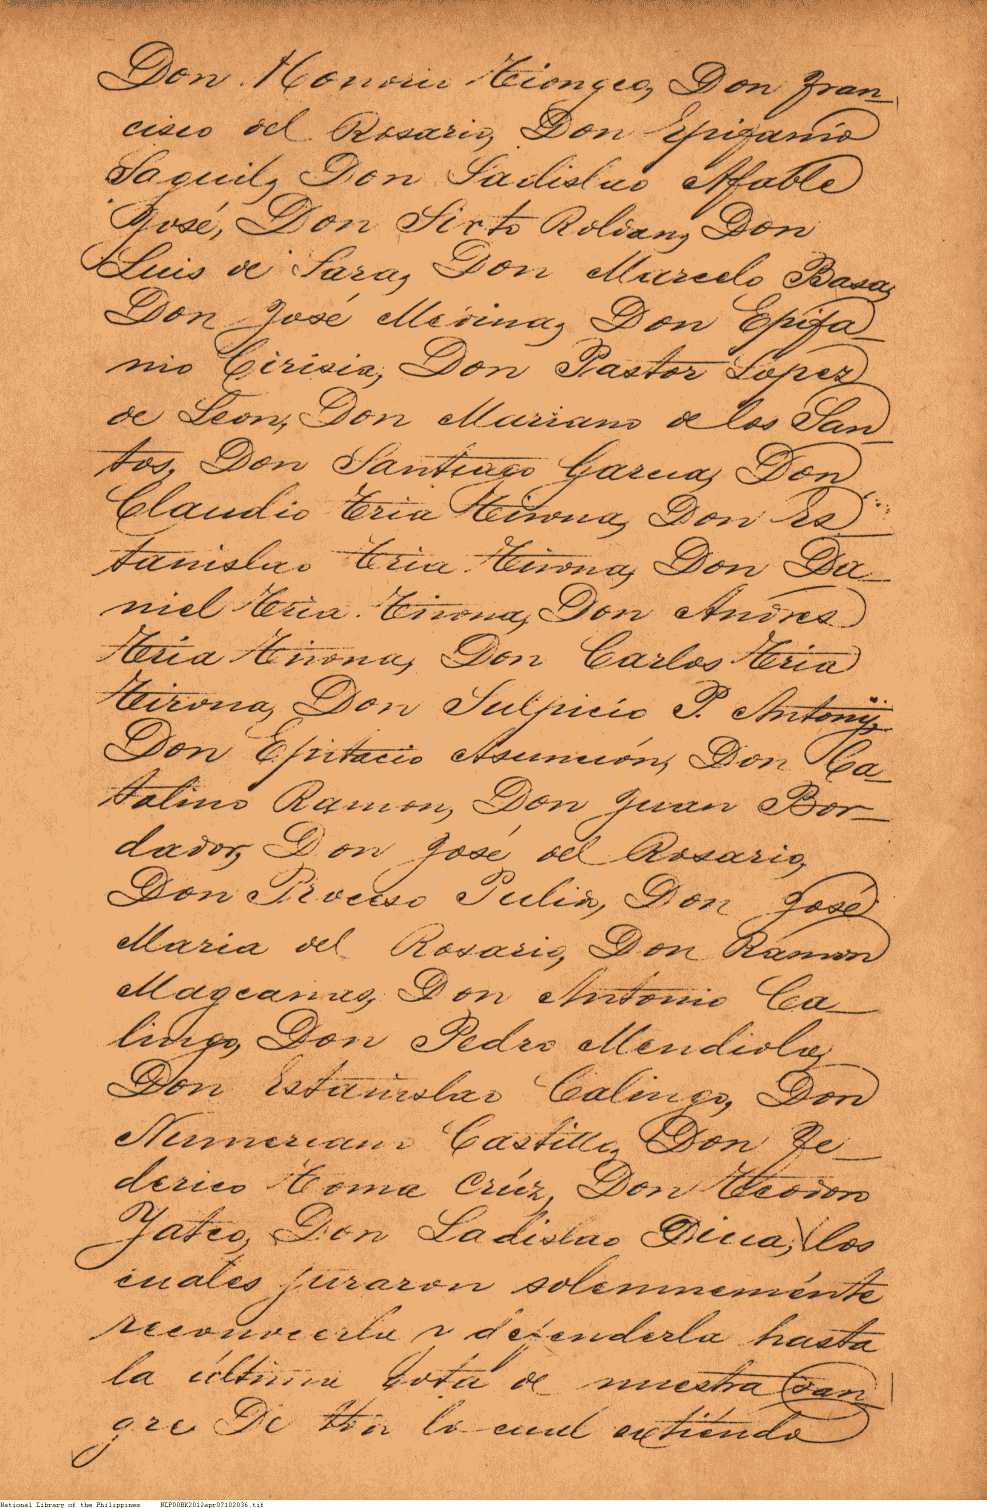 Don Honorio Tiongco, Don Fran-
cisco del Rosario, Don Epifanio
Saguil, Don Ladislao Afable
José, Don Sixto Roldan, Don
Luis de Lara, Don Marcelo Basa,
Don José Medina, Don Epifa-
nio Crisia, Don Pastor Lopez
de Leon, Don Mariano de los San-
tos, Don Santiago Garcia, Don
Claudio Tria Tirona, Don Es-
tanislao Tria Tirona, Don Da-
niel Tria Tirona, Don Andres
Tria Tirona, Don Carlos Tria
Tirona, Don Sulpicio P. Antony,
Don Epitacio Asunción, Don Ca-
talino Ramon, Don Juan Bor-
dador, Don José del Rosario,
Don Proceso Pulido, Don José
Maria del Rosario, Don Ramon
Magcamas, Don Antonio Ca-
lingo, Don Pedro Mendiola,
Don Estanislao Calingo, Don
Numeriano Castillo, Don Fe-
derico Toma Crúz, Don Teodoro
Yatco, Don Ladislao Diwa, los
cuales juraron solemneménte
reconocerla y defenderla hasta
la última gota de nuestra san-
gre. De to lo cual extiéndo
National Library of the Philippines NLP00BK2012apr07102036.tif